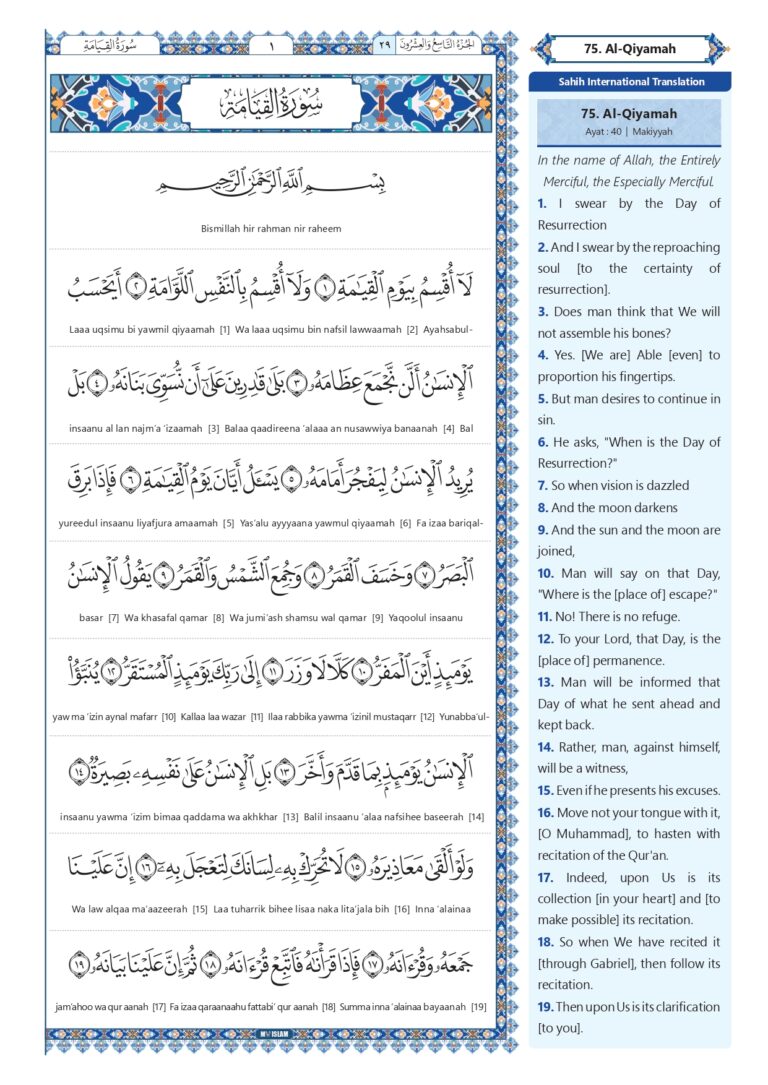 الجزء التاسع والعشرون
٢٩
١
سورة القيامة
سُورَةُ الْقِيَامَةِ
بِسْمِ ٱللَّهِ ٱلرَّحْمَٰنِ ٱلرَّحِيمِ
Bismillah hir rahman nir raheem
لَآ أُقْسِمُ بِيَوْمِ ٱلْقِيَٰمَةِ ١ وَلَآ أُقْسِمُ بِٱلنَّفْسِ ٱللَّوَّامَةِ ٢ أَيَحْسَبُ
Laaa uqsimu bi yawmil qiyaamah [1] Wa laaa uqsimu bin nafsil lawwaamah [2] Ayahsabul-
ٱلْإِنسَٰنُ أَلَّن نَّجْمَعَ عِظَامَهُۥ ٣ بَلَىٰ قَٰدِرِينَ عَلَىٰٓ أَن نُّسَوِّىَ بَنَانَهُۥ ٤ بَلْ
insaanu al lan najm'a 'izaamah [3] Balaa qaadireena 'alaaa an nusawwiya banaanah [4] Bal
يُرِيدُ ٱلْإِنسَٰنُ لِيَفْجُرَ أَمَامَهُۥ ٥ يَسْـَٔلُ أَيَّانَ يَوْمُ ٱلْقِيَٰمَةِ ٦ فَإِذَا بَرِقَ
yureedul insaanu liyafjura amaamah [5] Yas'alu ayyyaana yawmul qiyaamah [6] Fa izaa bariqal-
ٱلْبَصَرُ ٧ وَخَسَفَ ٱلْقَمَرُ ٨ وَجُمِعَ ٱلشَّمْسُ وَٱلْقَمَرُ ٩ يَقُولُ ٱلْإِنسَٰنُ
basar [7] Wa khasafal qamar [8] Wa jumi'ash shamsu wal qamar [9] Yaqoolul insaanu
يَوْمَئِذٍ أَيْنَ ٱلْمَفَرُّ ١٠ كَلَّا لَا وَزَرَ ١١ إِلَىٰ رَبِّكَ يَوْمَئِذٍ ٱلْمُسْتَقَرُّ ١٢ يُنَبَّؤُا۟
yaw ma 'izin aynal mafarr [10] Kallaa laa wazar [11] Ilaa rabbika yawma 'izinil mustaqarr [12] Yunabba'ul-
ٱلْإِنسَٰنُ يَوْمَئِذٍۭ بِمَا قَدَّمَ وَأَخَّرَ ١٣ بَلِ ٱلْإِنسَٰنُ عَلَىٰ نَفْسِهِۦ بَصِيرَةٌ ١٤
insaanu yawma 'izim bimaa qaddama wa akhkhar [13] Balil insaanu 'alaa nafsihee baseerah [14]
وَلَوْ أَلْقَىٰ مَعَاذِيرَهُۥ ١٥ لَا تُحَرِّكْ بِهِۦ لِسَانَكَ لِتَعْجَلَ بِهِۦٓ ١٦ إِنَّ عَلَيْنَا
Wa law alqaa ma'aazeerah [15] Laa tuharrik bihee lisaa naka lita'jala bih [16] Inna 'alainaa
جَمْعَهُۥ وَقُرْءَانَهُۥ ١٧ فَإِذَا قَرَأْنَٰهُ فَٱتَّبِعْ قُرْءَانَهُۥ ١٨ ثُمَّ إِنَّ عَلَيْنَا بَيَانَهُۥ ١٩
jam'ahoo wa qur aanah [17] Fa izaa qaraanaahu fattabi' qur aanah [18] Summa inna 'alainaa bayaanah [19]
MY ISLAM
75. Al-Qiyamah
Sahih International Translation
75. Al-Qiyamah
Ayat : 40 | Makiyyah
In the name of Allah, the Entirely
Merciful, the Especially Merciful.
1. I swear by the Day of
Resurrection
2. And I swear by the reproaching
soul [to the certainty of
resurrection].
3. Does man think that We will
not assemble his bones?
4. Yes. [We are] Able [even] to
proportion his fingertips.
5. But man desires to continue in
sin.
6. He asks, "When is the Day of
Resurrection?"
7. So when vision is dazzled
8. And the moon darkens
9. And the sun and the moon are
joined,
10. Man will say on that Day,
"Where is the [place of] escape?"
11. No! There is no refuge.
12. To your Lord, that Day, is the
[place of] permanence.
13. Man will be informed that
Day of what he sent ahead and
kept back.
14. Rather, man, against himself,
will be a witness,
15. Even if he presents his excuses.
16. Move not your tongue with it,
[O Muhammad], to hasten with
recitation of the Qur'an.
17. Indeed, upon Us is its
collection [in your heart] and [to
make possible] its recitation.
18. So when We have recited it
[through Gabriel], then follow its
recitation.
19. Then upon Us is its clarification
[to you].